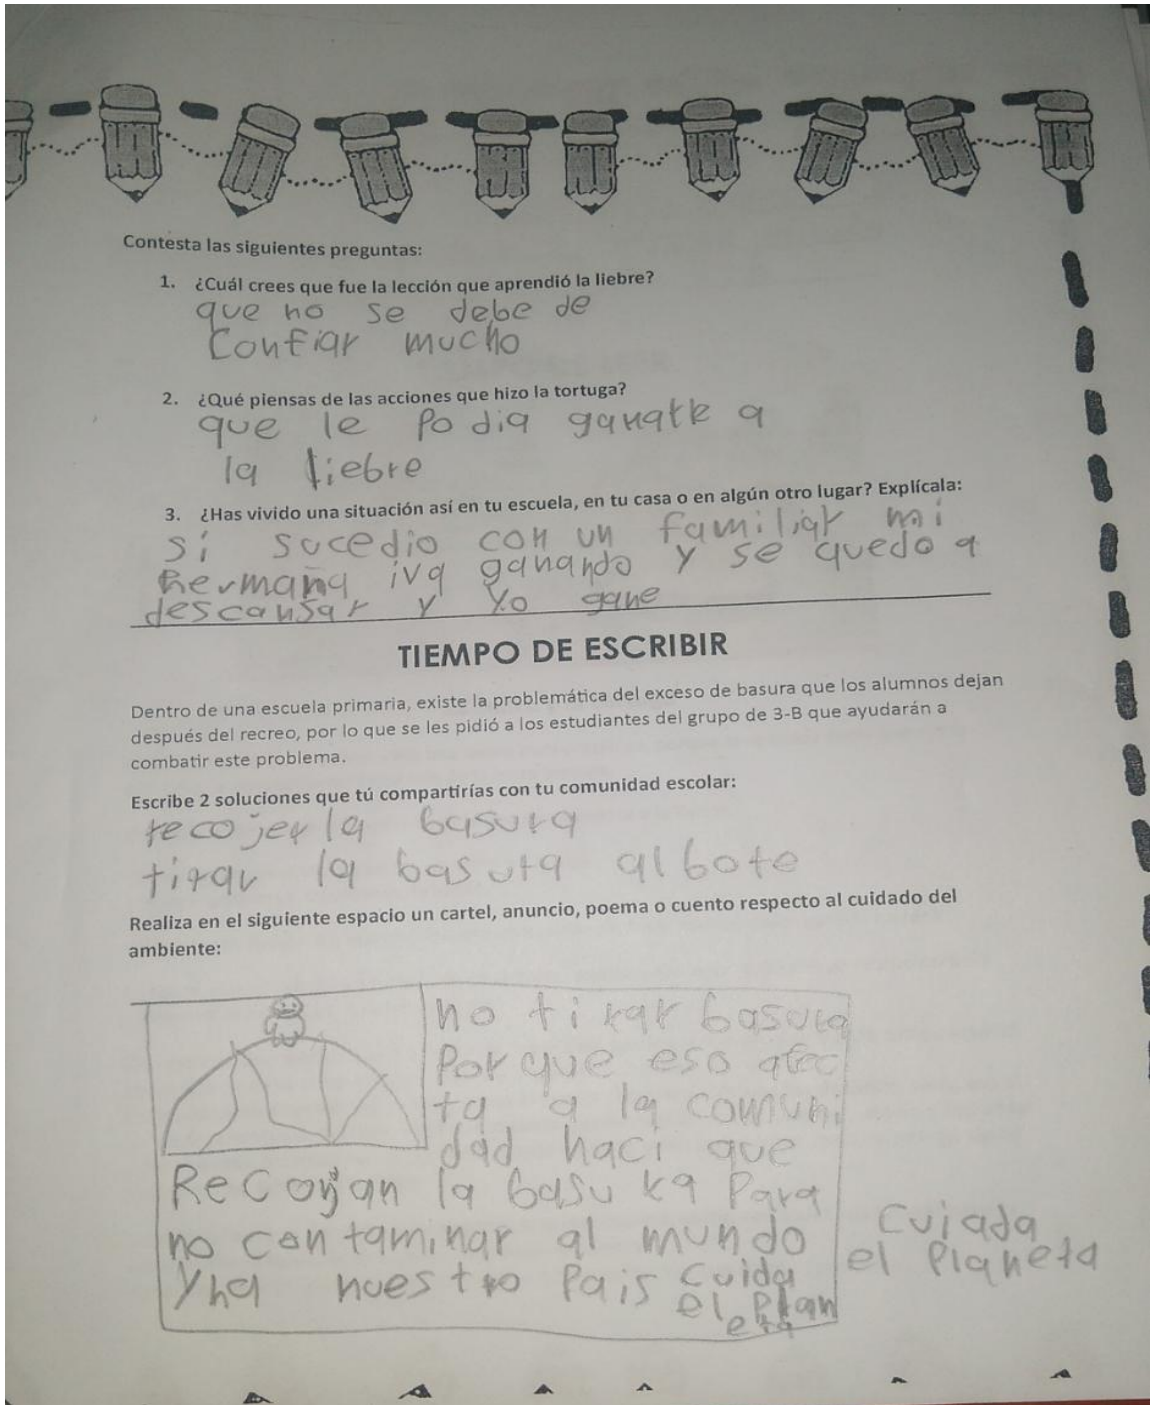 Contesta las siguientes preguntas:
1. ¿Cuál crees que fue la lección que aprendió la liebre?
que no se debe de
Confiar mucho
2. ¿Qué piensas de las acciones que hizo la tortuga?
que le Podia ganarle a
la liebre
3. ¿Has vivido una situación así en tu escuela, en tu casa o en algún otro lugar? Explícala:
si sucedio con un familiar mi
hermana iva ganando y se quedo a
descansar y yo gane
TIEMPO DE ESCRIBIR
Dentro de una escuela primaria, existe la problemática del exceso de basura que los alumnos dejan
después del recreo, por lo que se les pidió a los estudiantes del grupo de 3-B que ayudarán a
combatir este problema.
Escribe 2 soluciones que tú compartirías con tu comunidad escolar:
recojer la basura
tirar la basura al bote
Realiza en el siguiente espacio un cartel, anuncio, poema o cuento respecto al cuidado del
ambiente:
no tirar basura
Porque eso afec
ta a la comuni
dad haci que
Recojan la basura Para
no contaminar al mundo
Y ha nuestro Pais Cuida
el Plan
eta
Cuiada
el Planeta